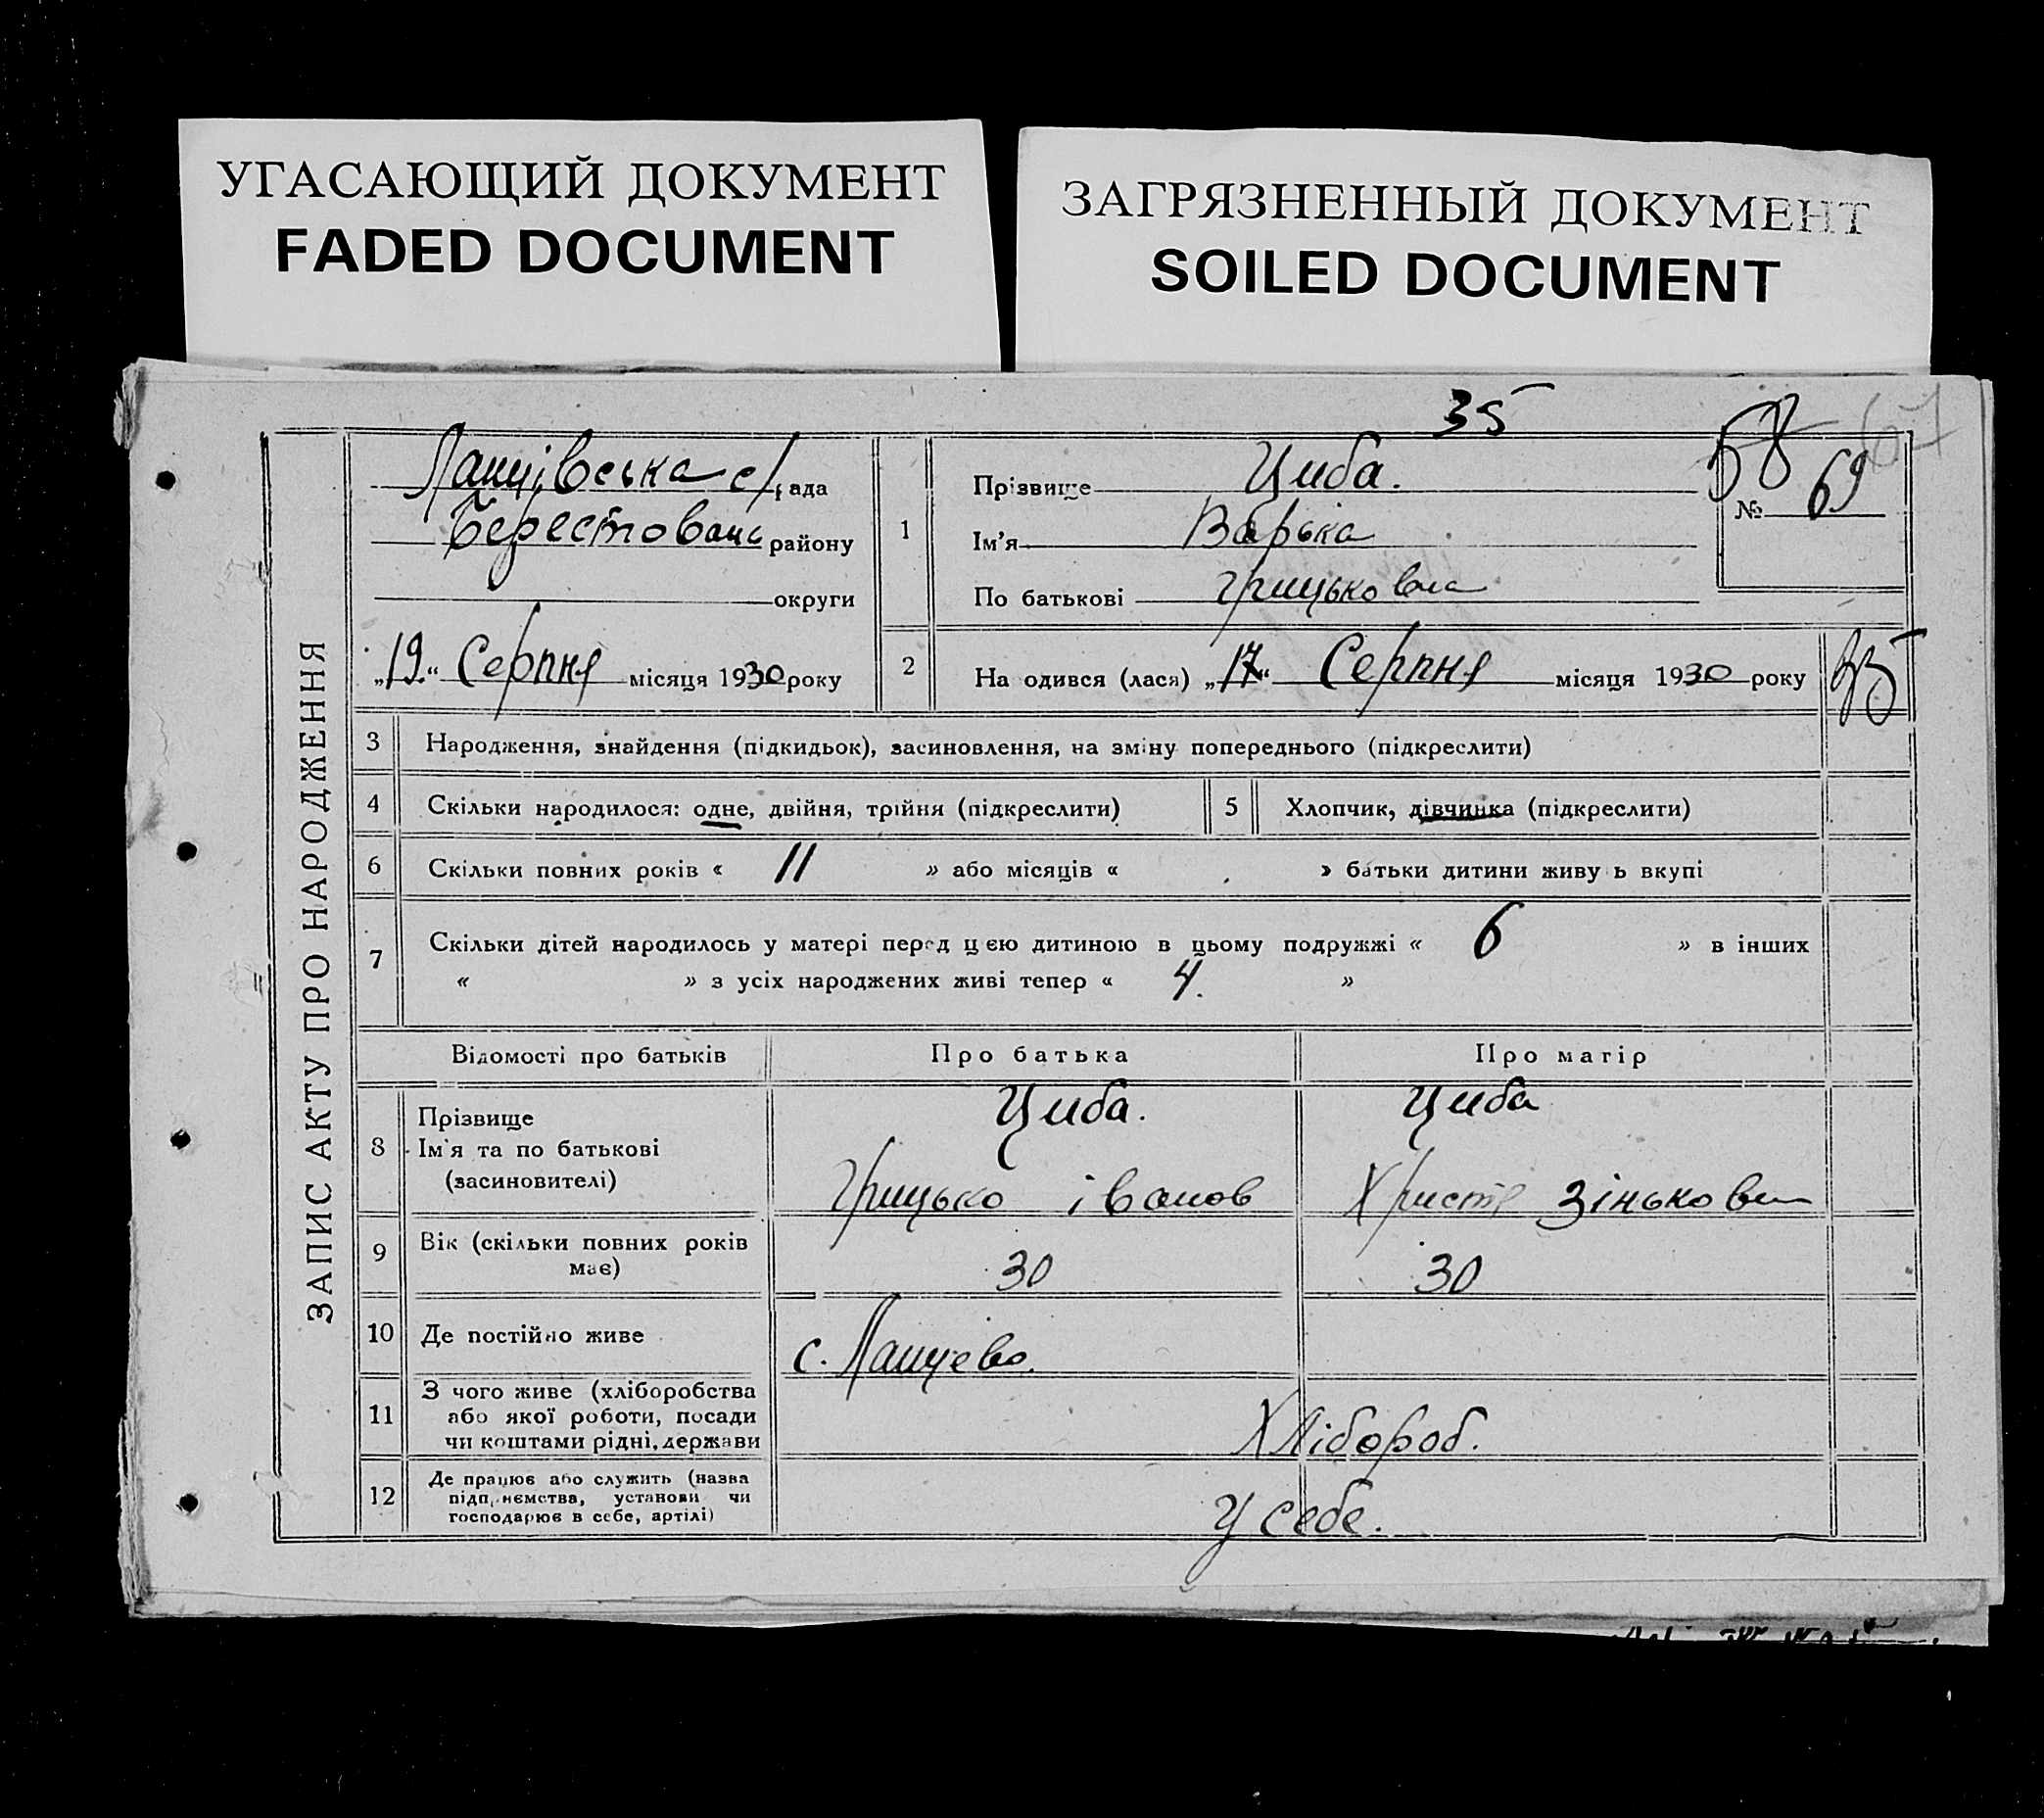 УГАСАЮЩИЙ ДОКУМЕНТ
FADED DOCUMENT
ЗАГРЯЗНЕННЫЙ ДОКУМЕНТ
SOILED DOCUMENT
35
ЗАПИС АКТУ ПРО НАРОДЖЕННЯ
Ланцівська с/рада
Берестованс району
округи
„19“ Серпня місяця 1930 року
1
Прізвище Циба.
Ім'я Варька
По батькові Грицьковна
58 67
№ 69
2
На одився (лася) „17“ Серпня місяця 1930 року
35
3 Народження, знайдення (підкидьок), засиновлення, на зміну попереднього (підкреслити)
4 Скільки народилося: одне, двійня, трійня (підкреслити)
5 Хлопчик, дівчинка (підкреслити)
6 Скільки повних років « 11 » або місяців « » батьки дитини живу ь вкупі
7 Скільки дітей народилось у матері перед цією дитиною в цьому подружжі « 6 » в інших
« » з усіх народжених живі тепер « 4. »
Відомості про батьків Про батька Про матір
8 Прізвище Циба. Циба
Ім'я та по батькові
(засиновителі) Грицько іванов Христя Зіньковна
9 Вік (скільки повних років
має) 30 30
10 Де постійно живе с. Ланцево.
11 З чого живе (хліборобства
або якої роботи, посади
чи коштами рідні, держави Хлібороб.
12 Де працює або служить (назва
підп иємства, установи чи
господарює в себе, артілі) У себе.